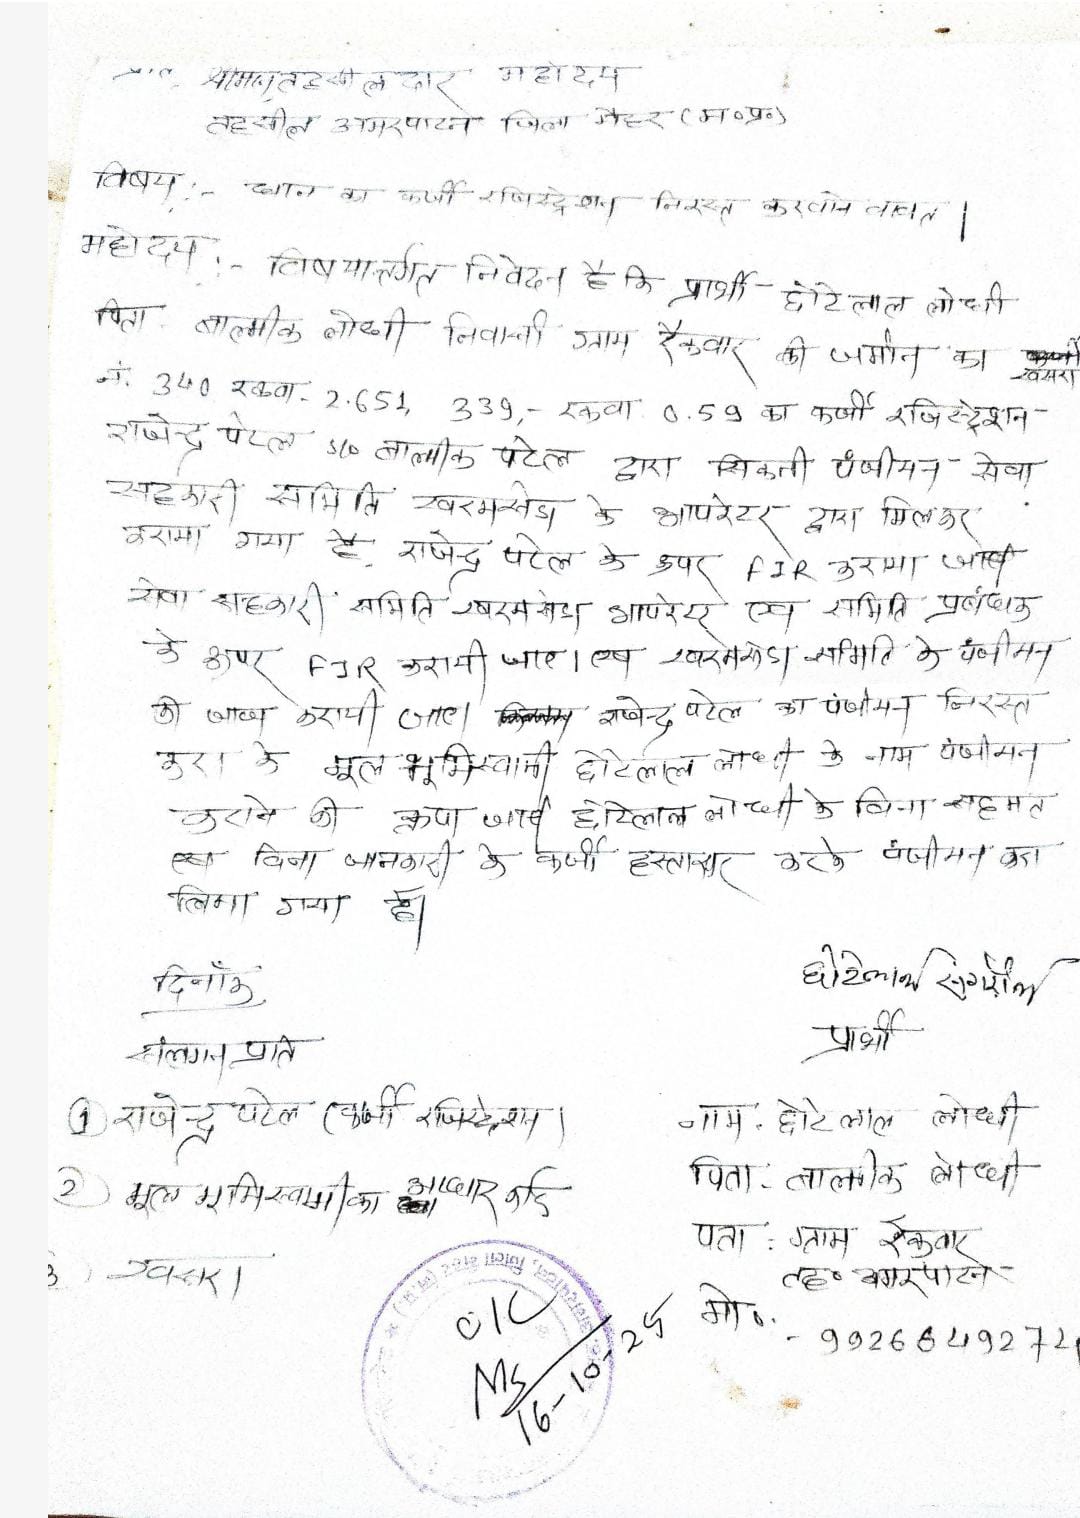 प्रति, श्रीमान् तहसीलदार महोदय
तहसील अमरपाटन जिला मैहर (म०प्र०)
विषय:- धान का फर्जी रजिस्ट्रेशन निरस्त करवाने बावत।
महोदय:- विषयान्तर्गत निवेदन है कि प्रार्थी छोटेलाल लोधी
पिता बाल्मीक लोधी निवासी ग्राम रैकवार की जमीन का खसरा
नं. 340 रकवा- 2.651, 339,- रकवा 0.59 का फर्जी रजिस्ट्रेशन
राजेन्द्र पटेल s/o बाल्मीक पटेल द्वारा सिकमी पंजीयन सेवा
सहकारी समिति खरमसेडा के आपरेटर द्वारा मिलकर
कराया गया है, राजेन्द्र पटेल के ऊपर FIR कराया जाये
सेवा सहकारी समिति खरमसेडा आपरेटर एवं समिति प्रबंधक
के ऊपर FIR करायी जाए। एवं खरमसेडा समिति के पंजीयन
की जांच करायी जाए। राजेन्द्र पटेल का पंजीयन निरस्त
करा के मूल भूमिस्वामी छोटेलाल लोधी के नाम पंजीयन
कराने की कृपा जाये छोटेलाल लोधी के बिना सहमत
एवं बिना जानकारी के फर्जी हस्ताक्षर करके पंजीयन करा
लिया गया है।
दिनाँक
छोटेलाल
संलगन प्रति
प्रार्थी
① राजेन्द्र पटेल (फर्जी रजिस्ट्रेशन।
नाम. छोटेलाल लोधी
2) मूल भूमिस्वामी का आधार कार्ड
पिता: बाल्मीक लोधी
3) खसरा।
पता: ग्राम रैकवार
तह० अमरपाटन
मो०. - 992664927
16-10-25